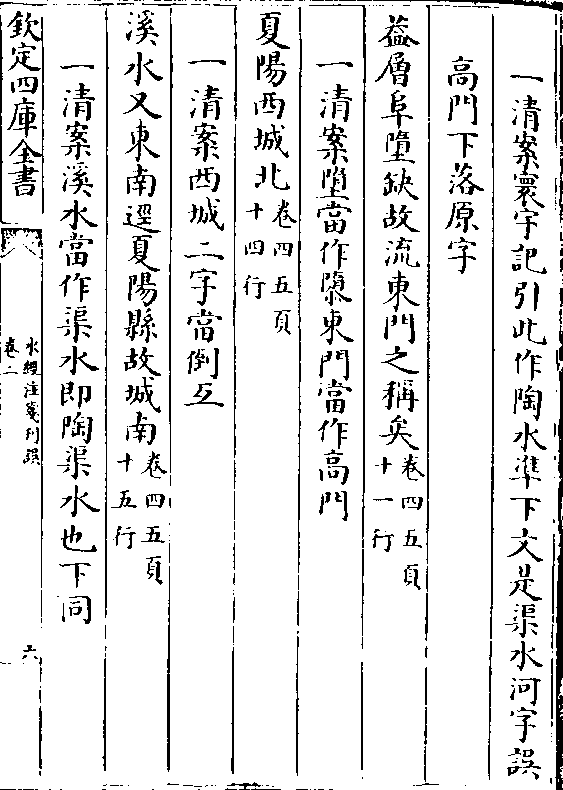 一清案寰宇記引此作陶水準下文是渠水河字誤
高門下落原字
益層阜墮缺故流東門之稱矣卷四五頁十一行
一清案墮當作隳東門當作高門
夏陽西城北卷四五頁十四行
一清案西城二字當倒互
溪水又東南逕夏陽縣故城南卷四五頁十五行
一清案溪水當作渠水即陶渠水也下同
欽定四庫全書
水經注箋刊誤
卷二
六